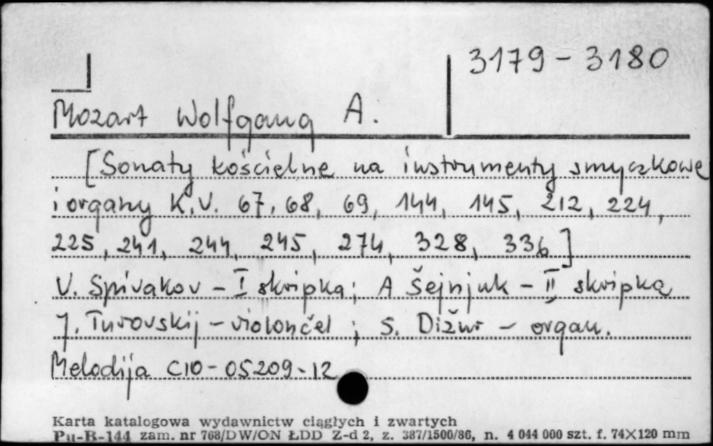 3179 - 3180
Mozart Wolfgang A.
[Sonaty kościelne na instrumenty smyczkowe
i organy K.V. 67, 68, 69, 144, 145, 212, 224,
225, 241, 244, 245, 274, 328, 336]
V. Spivakov - I skripka; A Šejnjuk - II skripka
J. Turovskij - violončel ; S. Dižur - organ.
Melodija C10 - 05209-12
Karta katalogowa wydawnictw ciągłych i zwartych
Pu-B-144 zam. nr 768/DW/ON ŁDD Z-d 2, z. 387/1500/86, n. 4 044 000 szt. f. 74X120 mm